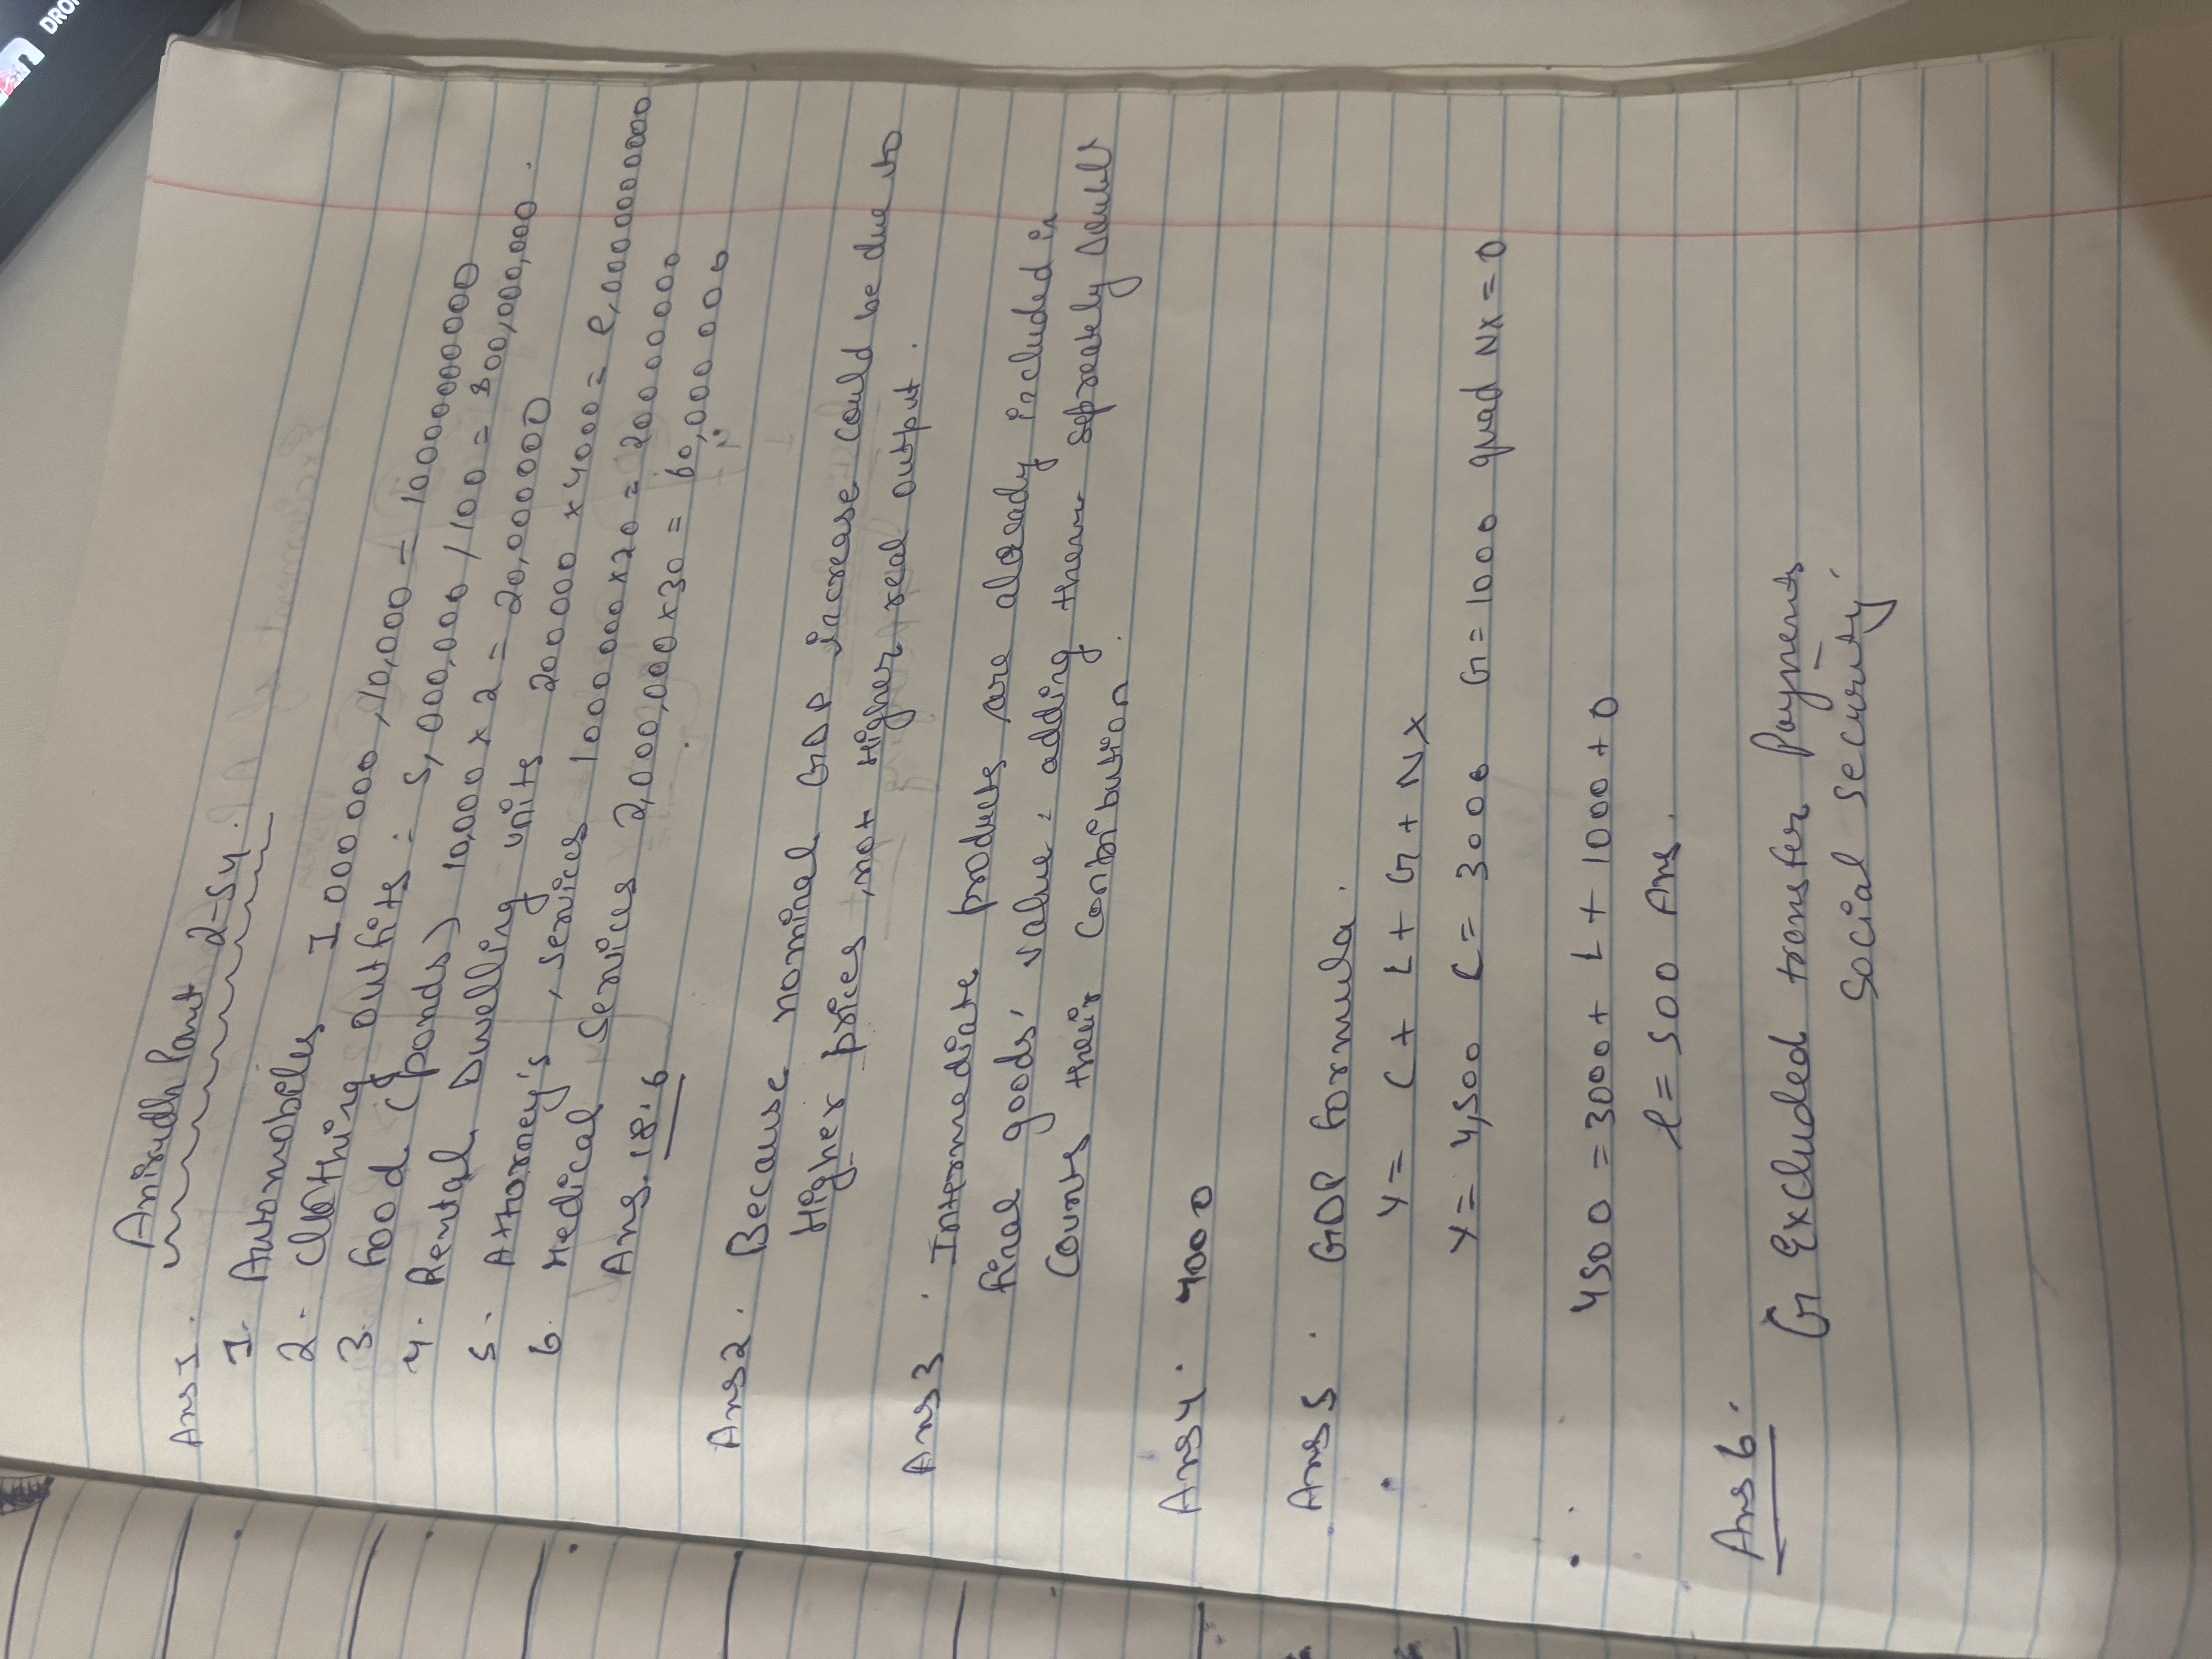 Anirudh Pant 2-54.
Ans 1.
1. Automobiles 1 000 000, 10,000 = 10000000000
2. Clothing outfits: 5,000,000 / 100 = 500,000,000.
3. Food (ponds) 10,000 x 2 = 20,000000
4. Rental Dwelling units 200 000 x 4000 = 8,00000000000
5. Attorney's, services 1000 000 x 20 = 2000 00000
6. Medical services 2,000,000 x 30 = 60,000 000
Ans. 18.6
Ans 2. Because nominal GDP increase could be due to
Higher prices, not Higher real output.
Ans 3. Intermediate products are already included in
final goods' value: adding them sepreately doubl
Counts their contribution.
Ans 4. 4000
Ans 5. GDP formula.
Y = C + I + G + NX
Y = 4,500 C = 3000 G = 1000 quad NX = 0
4500 = 3000 + I + 1000 + 0
I = 500 Ans.
Ans 6.
G Excluded transfer Payments
Social security.
DROP